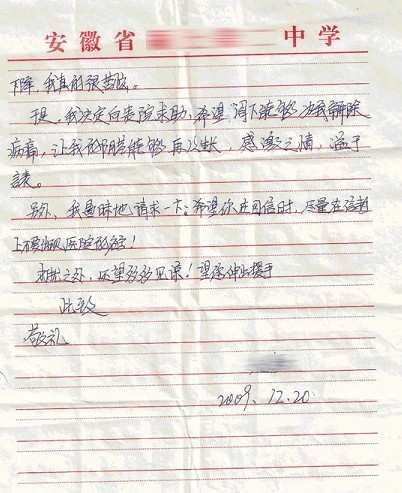 安徽省 中学
下降，我真的很苦恼。
于是，我决定向贵院求助，希望 阁下能够 为我解除
病痛，让我的 能够再次生长，感激之情，溢于
言表。
另外，我冒昧地请求一下：希望你在回信时，尽量在信封
上不要出现医院 ！
之处，还望多多见谅！望您伸出援手
此致
敬礼
2009. 12. 20